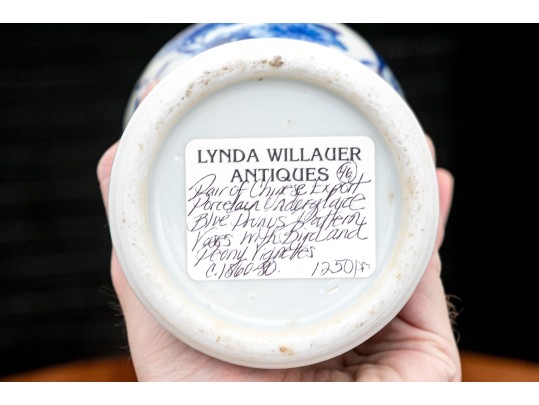 LYNDA WILLAUER
ANTIQUES 46
Pair of Chinese Export
Porcelain Underglaze
Blue Prunus Pattern
Vases with Bird and
Peony Vignettes
C.1860-80. 1250/pr